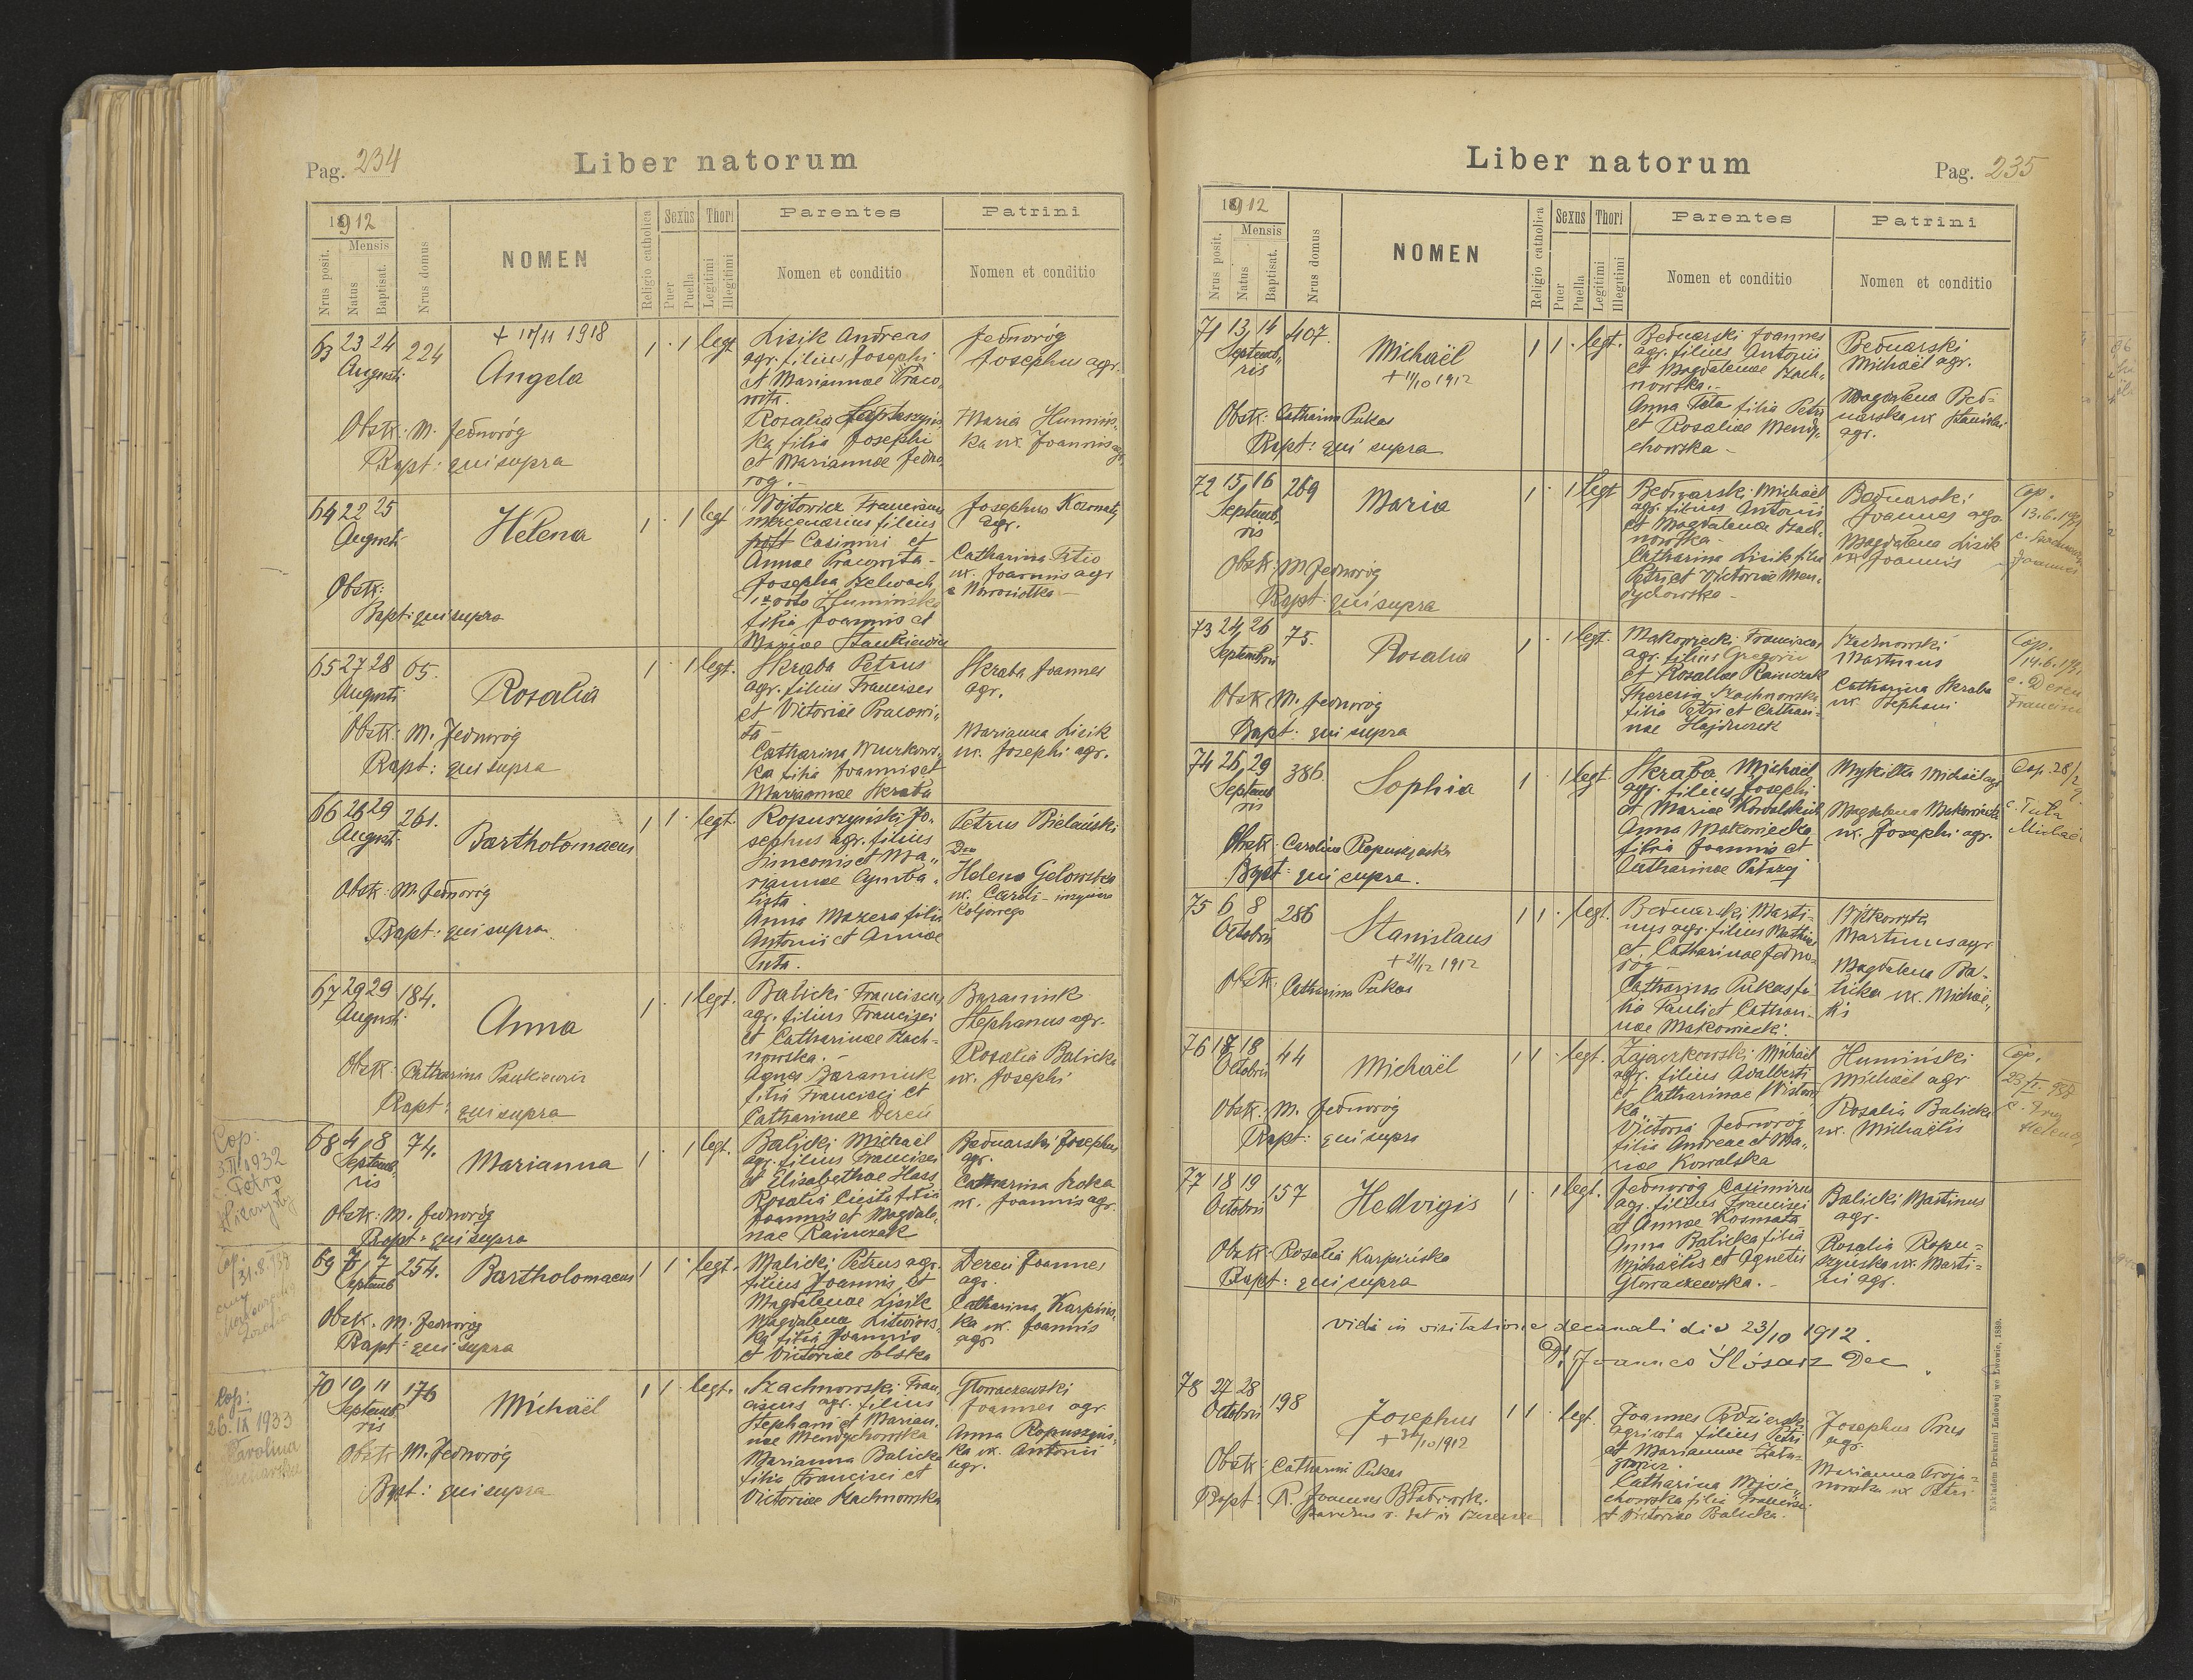 Pag. 234
Liber natorum
1912
Mensis
Nrus posit.
Natus
Baptisat.
Nrus domus
NOMEN
Religio catholica
Sexus
Puer
Puella
Thori
Legitimi
Illegitimi
Parentes
Nomen et conditio
Patrini
Nomen et conditio
63 23 24 224
Augusti
Angela
1 · 1 legt
Lisik Andreas
agr. filius Josephi
et Mariannae Praco-
wita.
Rosalia
ka filia Josephi
et Mariannae Jedno-
rog.-
Jednoróg
Josephus agr.
Maria Humińs-
ka ux. Joannis agr.
Obstr: M. Jednoróg
Bapt: qui supra
64 22 25
Augusti
Helena
1 · 1 legt
Wojtowicz Franciscus
mercenarius filius
Casimiri et
Annae Pracowita -
Josepha
Humińska
filia Joannis et
Mariae Stankiewicz
Josephus Kosmaty
agr.
Catharina
ux. Joannis agr
Obstr:
Bapt: qui supra
65 27 28 65.
Augusti
Rosalia
1 · 1 legt.
Skraba Petrus
agr. filius Francisci
et Victoriae Pracowi-
ta -
Catharina
ka filia Joannis et
Mariannae Skraba
Skraba Joannes
agr.
Marianna Lisik
ux. Josephi agr.
Obstr: M. Jednoróg
Bapt: qui supra
66 28 29 261.
August.
Bartholomaeus
1 1 · legt.
Ropuszyński Jo-
sephus agr. filius
Simeonis et Ma-
riannae Cymba-
lista
Anna Mazera filia
Antonii et Annae
Tuta.
Petrus Bielański
Helena Gelowska
ux. Caroli - inżyniera
kolejowego
Obstr: M. Jednoróg
Bapt: qui supra
67 29 29 184.
Augusti
Anna
1 · 1 legt.
Balicki Franciscus
agr. filius Francisci
et Catharinae Szach-
nowska. -
Agnes Baraniuk
filia Francisci et
Catharinae Dereń
Baraniuk
Stephanus agr.
Rosalia Balicka
ux. Josephi
Obstr: Catharina
Bapt: qui supra
68 4 8 74.
Septemb-
ris
Marianna
1 · 1 legt.
Balicki Michaël
agr. filius Francisci
et Elisabethae Hass
Rosalia Cieśla filia
Joannis et Magdale-
nae Rainczak
Bednarski Josephus
agr.
Catharina Sroka
ux. Joannis agr.
Obstr: M. Jednoróg
Bapt: qui supra
Cop:
3.II.1932
c. Petro
69 7 254.
Septemb
Bartholomaeus
1 1 · legt.
Malicki Petrus agr.
filius Joannis et
Magdalenae Lisik
Magdalena Litwińs-
ka filia Joannis
et Victoriae Solska
Dereń Joannes
agr.
Catharina Karpińs-
ka ux. Joannis
agr.
Obstr. M. Jednoróg
Bapt: qui supra
Cop.
70 10 11 176
Septemb-
ris
Michaël
1 1 · legt.
Szachnowski Fran-
ciscus agr. filius
Stephani et Marian-
nae Mendychowska
Marianna Balicka
filia Francisci et
Victoriae Szachnowska
Głowaczewski
Joannes agr.
Anna Ropuszyńs-
ka ux. Antonii
agr.
Obstr M. Jednoróg
Bapt: qui supra
Cop:
26. IX 1933
Karolina
Liber natorum
Pag. 235
1912
Mensis
Nrus posit.
Natus
Baptisat.
Nrus domus
NOMEN
Religio catholica
Sexus
Puer
Puella
Thori
Legitimi
Illegitimi
Parentes
Nomen et conditio
Patrini
Nomen et conditio
71 13 14 407.
Septemb-
ris
Michaël
+ 11/10 1912
1 1 · legt.
Bednarski Joannes
agr. filius Antonii
et Magdalenae Szach-
nowska. -
Anna Tuta filia Petri
et Rosaliae Mendy-
chowska -
Bednarski
Michaël agr.
Magdalena Bed-
narska ux Stanislai
agr.
Obstr: Catharina Pukas
Bapt: qui supra
72 15 16 269
Septemb-
ris
Maria
1 · 1 legt
Bednarski Michaël
agr. filius Antonii
et Magdalenae Szach-
nowska -
Catharina Lisik filia
Petri et Victoriae Men-
dychowska -
Bednarski
Joannes agr.
Magdalena Lisik
ux Joannis
Obstr: M Jednoróg
Bapt: qui supra
Cop.
73 24 26 75.
Septembris
Rosalia
1 · 1 legt.
Makowiecki Franciscus
agr. filius Gregorii
et Rosaliae Rainczak
Theresia Szachnowska
filia Petri et Cathari-
nae Hajduczek
Szachnowski
Martinus
Catharina Skraba
ux. Stephani
Obstr M. Jednoróg
Bapt: qui supra
Cop.
c. Dereń
Francisco
74 26 29 386.
Septemb
ris
Sophia
1 · 1 legt
Skraba Michaël
agr. filius Josephi
et Mariae Kowalskich
Anna Makowiecka
filia Joannis et
Catharinae
Mykitka Michaël agr
Magdalena Makowiecka
ux. Josephi agr.
Obstr: Carolina Ropuszańska
Bapt: qui supra.
Cop. 28/2
c. Tuta
Michaël
75 6 8 286
Octobris
Stanislaus
+ 21/12 1912
1 1 · legt.
Bednarski Marti-
nus agr. filius Mathiae
et Catharinae Jedno-
rog -
Catharina Pukas fi-
lia Pauli et Cathari-
nae Makowiecki.
Martinus agr
Magdalena Ba-
licka ux. Michaë-
lis
Obstr: Catharina Pukas
76 17 18 44
Octobris
Michaël
1 1 · legt.
Zajączkowski Michaël
agr. filius Adalberti
et Catharinae
ka
Victoria Jednoróg
filia Andreae et Ma-
riae Kowalska
Humiński
Michaël agr
Rosalia Balicka
ux. Michaëlis
Obstr: M. Jednoróg
Bapt: qui supra
Cop.
Helena
77 18 19 157
Octobris
Hedvigis
1 · 1 legt.
Jednoróg Casimirus
agr. filius Francisci
et Annae Kosmata
Anna Balicka filia
Michaëlis et Agnetis
Głowaczewska. -
Balicki Martinus
agr.
Rosalia Ropu-
szyńska ux. Marti-
ni agr.
Obstr: Rosalia Karpińska
Bapt: qui supra
vidi in visitatione decanali die 23/10 1912.
Joannes Ślósarz Dec
78 27 28 198
Octobris
Josephus
+ 30/10 1912
1 1 · legt.
Joannes
agricola filius Petri
et Mariannae
Catharina Wojcie-
chowska filia Francisci
et Victoriae Balicka.
Josephus Prus
agr.
Marianna Troja-
nowska ux Petri
Obstr: Catharina Pukas
Bapt: R. Joannes
Nakładem Drukarni Ludowej we Lwowie, 1889.